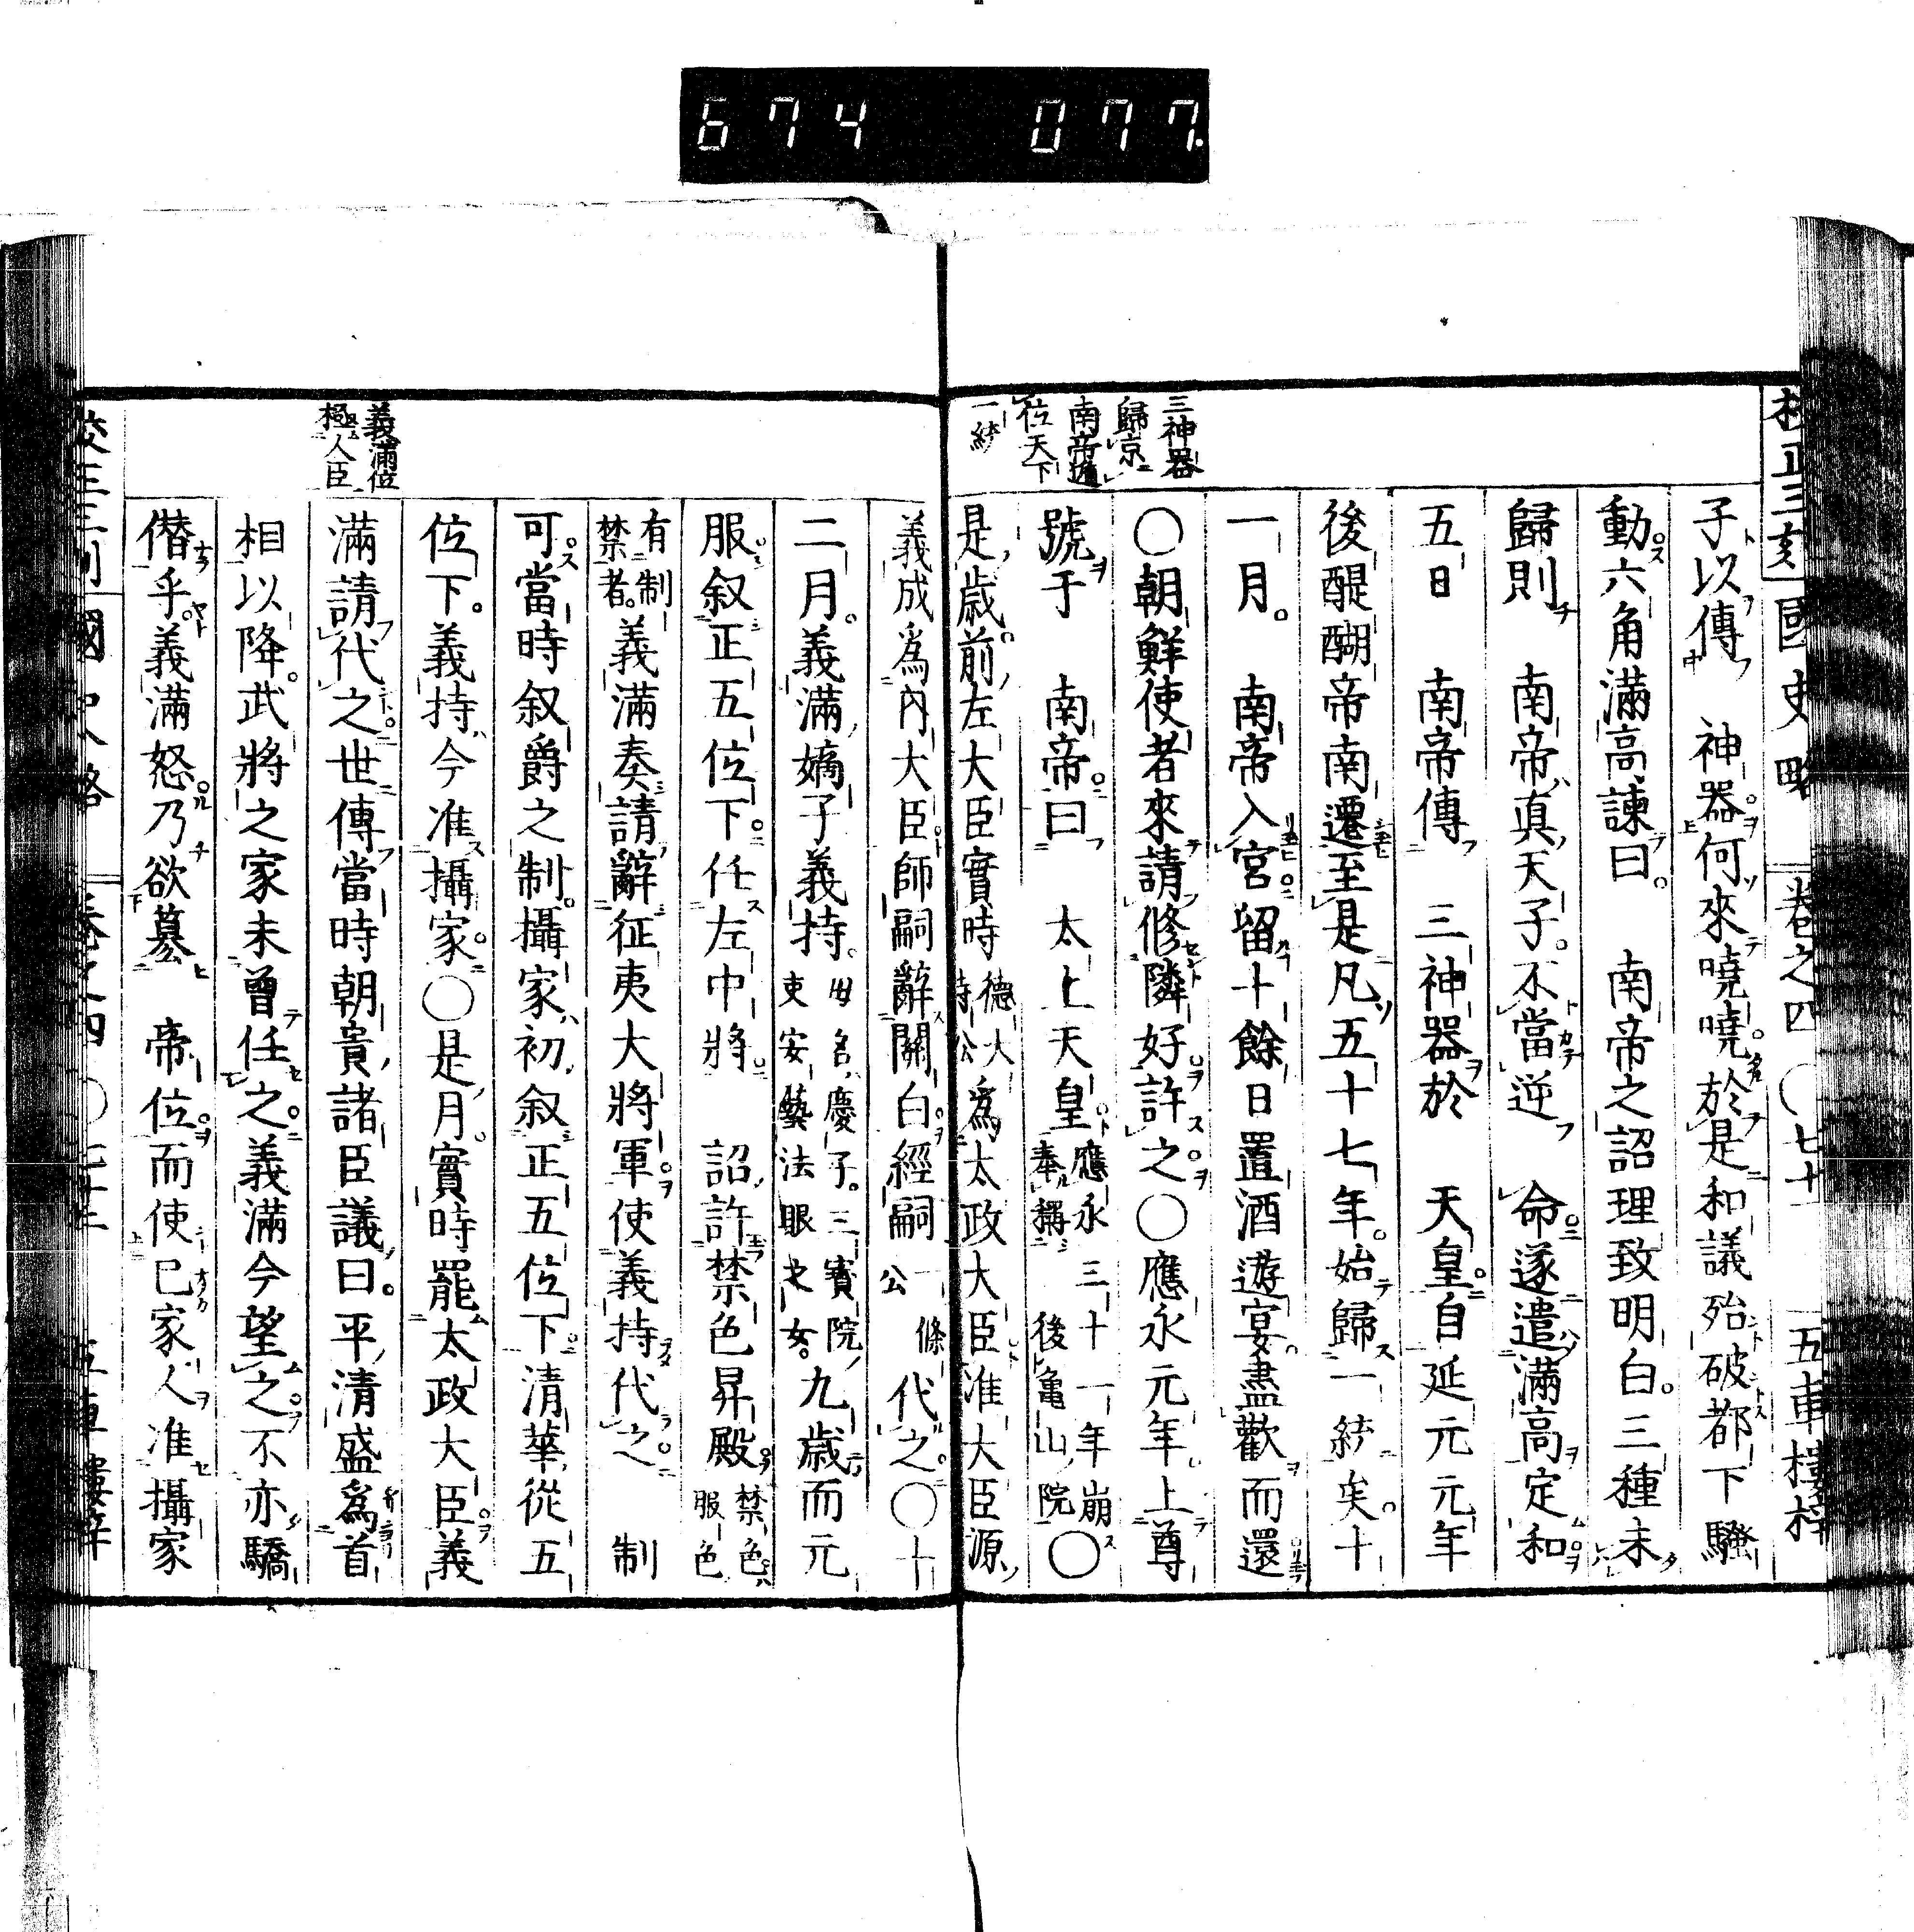 674 077
國史略 卷之四 ○七十 五車樓梓
三神器
歸京
南帝遜
位天下
一統
子以傳 神器何來嘵嘵於是和議殆破都下騷
動六角滿高諫曰 南帝之詔理致明白三種未
歸則 南帝真天子不當逆 命遂遣滿高定和
五日 南帝傳 三神器於 天皇自延元元年
後醍醐帝南遷至是凡五十七年始歸一統矣十
一月 南帝入宮留十餘日置酒遊宴盡歡而還
○朝鮮使者來請修隣好許之○應永元年上尊
號于 南帝曰 太上天皇應永三十一年崩奉稱後龜山院○
是歲前左大臣實時德大寺公爲太政大臣准大臣源
義成爲內大臣師嗣辭關白經嗣一條公代之○十
二月義滿嫡子義持母名慶子三寶院吏安藝法眼之女九歲而元
服叙正五位下任左中將 詔許禁色昇殿禁色服色
有制禁者義滿奏請辭征夷大將軍使義持代之 制
可當時叙爵之制攝家初叙正五位下清華從五
位下義持今准攝家○是月實時罷太政大臣義
滿請代之世傳當時朝貴諸臣議曰平清盛爲首
相以降武將之家未曾任之義滿今望之不亦驕
僭乎義滿怒乃欲簒 帝位而使已家人准攝家
義滿位
極人臣